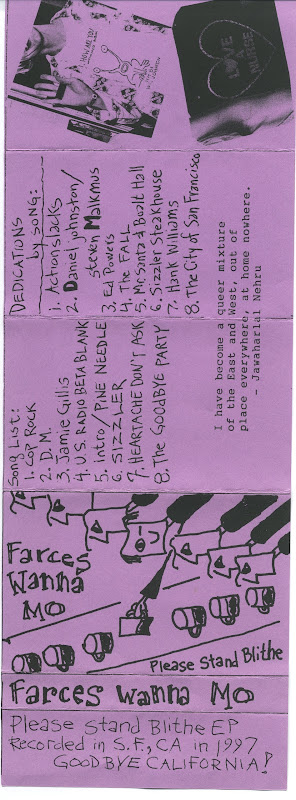 HI, HOW ARE YOU
LOVE
A
NURSE
DEDICATIONS
by SONG:
1. Actionslacks
2. Daniel johnston/
steven Malkmus
3. Ed Powers
4. The FALL
5. Mr. Santz @ Boalt Hall
6. Sizzler Steakhouse
7. Hank Williams
8. The City of San Francisco
Song List:
1. COP ROCK
2. D.M.
3. Jamie Gillis
4. U.S. RADIO BETA BLANK
5. intro/PINE NEEDLE
6. SIZZLER
7. HEARTACHE DON'T ASK
8. The GOODBYE PARTY
I have become a queer mixture
of the East and West, out of
place everywhere, at home nowhere.
- Jawaharlal Nehru
Farces
Wanna
Mo
Please Stand Blithe
Farces wanna Mo
Please Stand Blithe EP
Recorded in S.F., CA in 1997
GOODBYE CALIFORNIA!